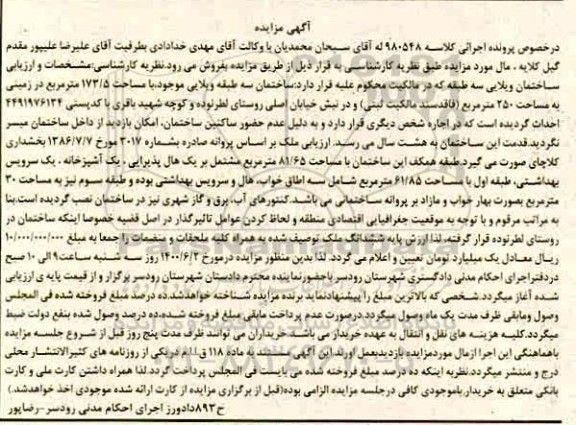 آگهی مزایده
درخصوص پرونده اجرائی کلاسه ۹۸۰۵۴۸ له آقای سبحان محمدیان با وکالت آقای مهدی خدادادی بطرفیت آقای علیرضا علیپور مقدم
گیل کلایه ، مال مورد مزایده طبق نظریه کارشناسی به قرار ذیل از طریق مزایده بفروش می رود.نظریه کارشناسی:مشخصات و ارزیابی
ساختمان ویلایی سه طبقه که در مالکیت محکوم علیه قرار دارد:ساختمان سه طبقه ویلایی موجود،با مساحت ۱۷۳/۵ مترمربع در زمینی
به مساحت ۲۵۰ مترمربع (فاقدسند مالکیت ثبتی) و در نبش خیابان اصلی روستای لطرتوده و کوچه شهید باقری با کدپستی ۴۴۹۱۹۷۶۱۳۴
احداث گردیده است که در اجاره شخص دیگری قرار دارد و به دلیل عدم حضور ساکنین ساختمان، امکان بازدید از داخل ساختمان میسر
نگردید.قدمت این ساختمان به هشت سال می رسد. ارزیابی ملک بر اساس پروانه صادره بشماره ۳۰۱۷ مورخ ۱۳۸۶/۷/۷ بخشداری
کلاچای صورت می گیرد.طبقه همکف این ساختمان با مساحت ۸۱/۶۵ مترمربع مشتمل بر یک هال پذیرایی ، یک آشپزخانه ، یک سرویس
بهداشتی، طبقه اول با مساحت ۶۱/۸۵ مترمربع شامل سه اطاق خواب، هال و سرویس بهداشتی بوده و طبقه سوم نیز به مساحت ۳۰
مترمربع بصورت بهار خواب و مازاد بر پروانه ساختمانی می باشد.کنتورهای آب، برق و گاز شهری نیز در ساختمان نصب گردیده است.بنا
به مراتب مرقوم و با توجه به موقعیت جغرافیایی اقتصادی منطقه و لحاظ کردن عوامل تاثیرگذار در اصل قضیه خصوصا اینکه ساختمان در
روستای لطرتوده قرار گرفته، لذا ارزش پایه ششدانگ ملک توصیف شده به همراه کلیه ملحقات و منضمات را جمعا به مبلغ ۱۰/۰۰۰/۰۰۰/۰۰۰
ریال معادل یک میلیارد تومان تعیین و اعلام می گردد. لذا بدین منظور مزایده درمورخ ۱۴۰۰/۶/۲ روز سه شنبه ساعت ۹ الی ۱۰ صبح
دردفتراجرای احکام مدنی دادگستری شهرستان رودسر باحضورنماینده محترم دادستان شهرستان رودسر برگزار و از قیمت پایه ی ارزیابی
شده آغاز میگردد.شخصی که بالاترین مبلغ را پیشنهادنماید برنده مزایده شناخته خواهدشد.ده درصد مبلغ فروخته شده فی المجلس
وصول ومابقی ظرف مدت یک ماه وصول میگردد.درصورت عدم پرداخت مابقی مبلغ فروخته شده،ده درصد وصول شده بنفع دولت ضبط
میگردد.کلیه هزینه های نقل و انتقال به عهده خریدار می باشد.خریداران می توانند ظرف مدت پنج روز قبل از شروع جلسه مزایده
باهماهنگی این اجرا ازمال موردمزایده بازدیدبعمل آورند.این آگهی مستند به ماده ۱۱۸ ق.ا.م دریکی از روزنامه های کثیرالانتشار محلی
درج و منتشر میگردد.نظریه اینکه ده درصد مبلغ فروخته شده می بایست فی المجلس پرداخت گردد.لذا همراه داشتن کارت ملی و کارت
بانکی متعلق به خریدار باموجودی کافی درجلسه مزایده الزامی بوده(قبل از برگزاری مزایده از کارت ارائه شده موجودی اخذ خواهدشد.)
ح۸۹۳دادورز اجرای احکام مدنی رودسر-رضاپور